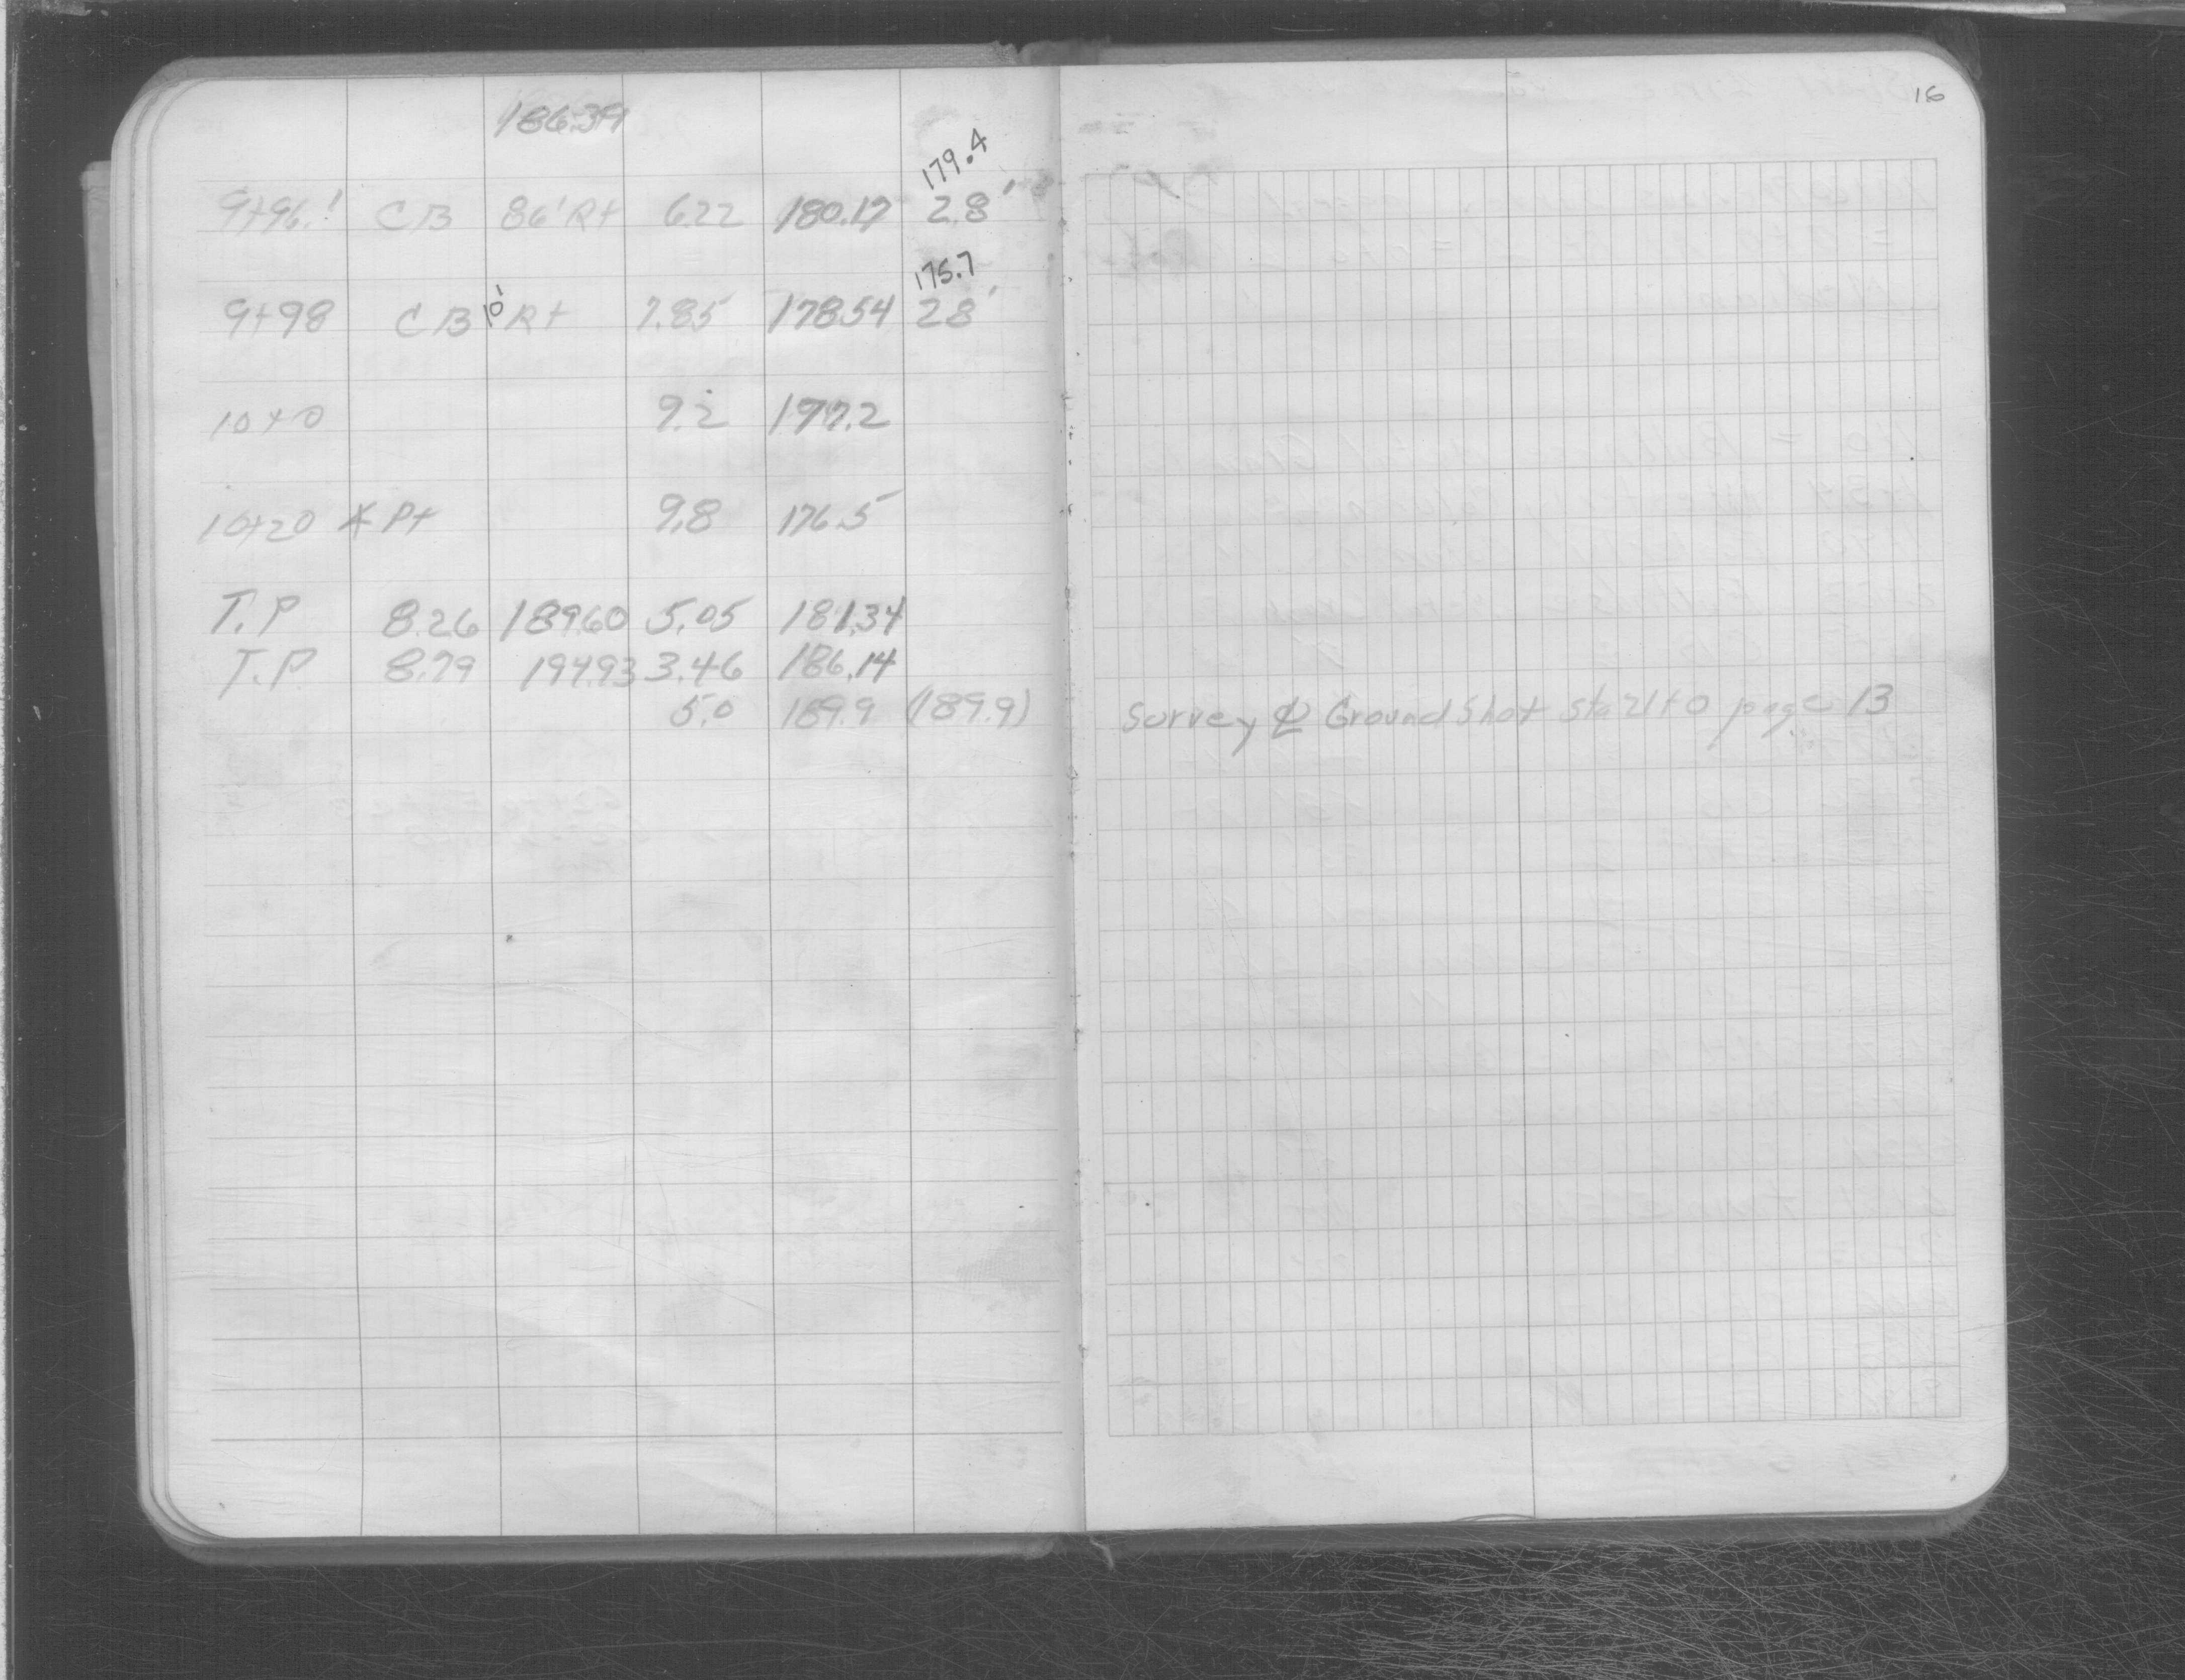 16
186.39
179.4
9+96.' CB 86' Rt 6.22 180.17 2.8'
175.7
9+98 CB 10' Rt 7.85 178.54 2.8'
10+0 9.2 177.2
10+20 ∡ Pt 9.8 176.5
T.P 8.26 189.60 5.05 181.34
T.P 8.79 194.93 3.46 186.14
5.0 189.9 (189.9) Survey ℄ Ground Shot sta 21+0 page 13